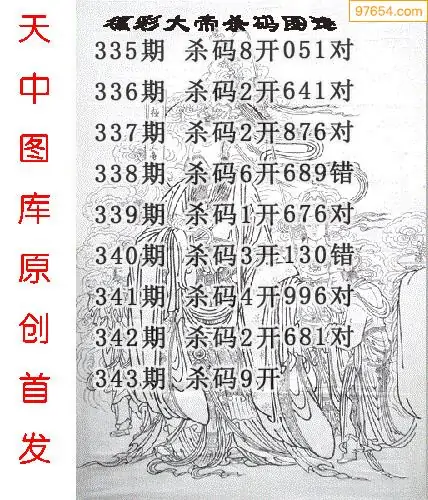 97654.com
福彩大帝杀码图谜
335期 杀码8开051对
336期 杀码2开641对
337期 杀码2开876对
338期 杀码6开689错
339期 杀码1开676对
340期 杀码3开130错
341期 杀码4开996对
342期 杀码2开681对
343期 杀码9开
天中图库原创首发